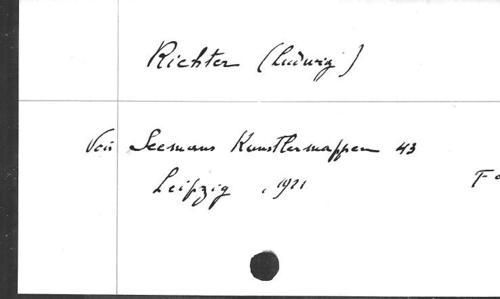 Richter (Ludwig)
Voir Seemans Kunstlermappen 43
Leipzig, 1921
F